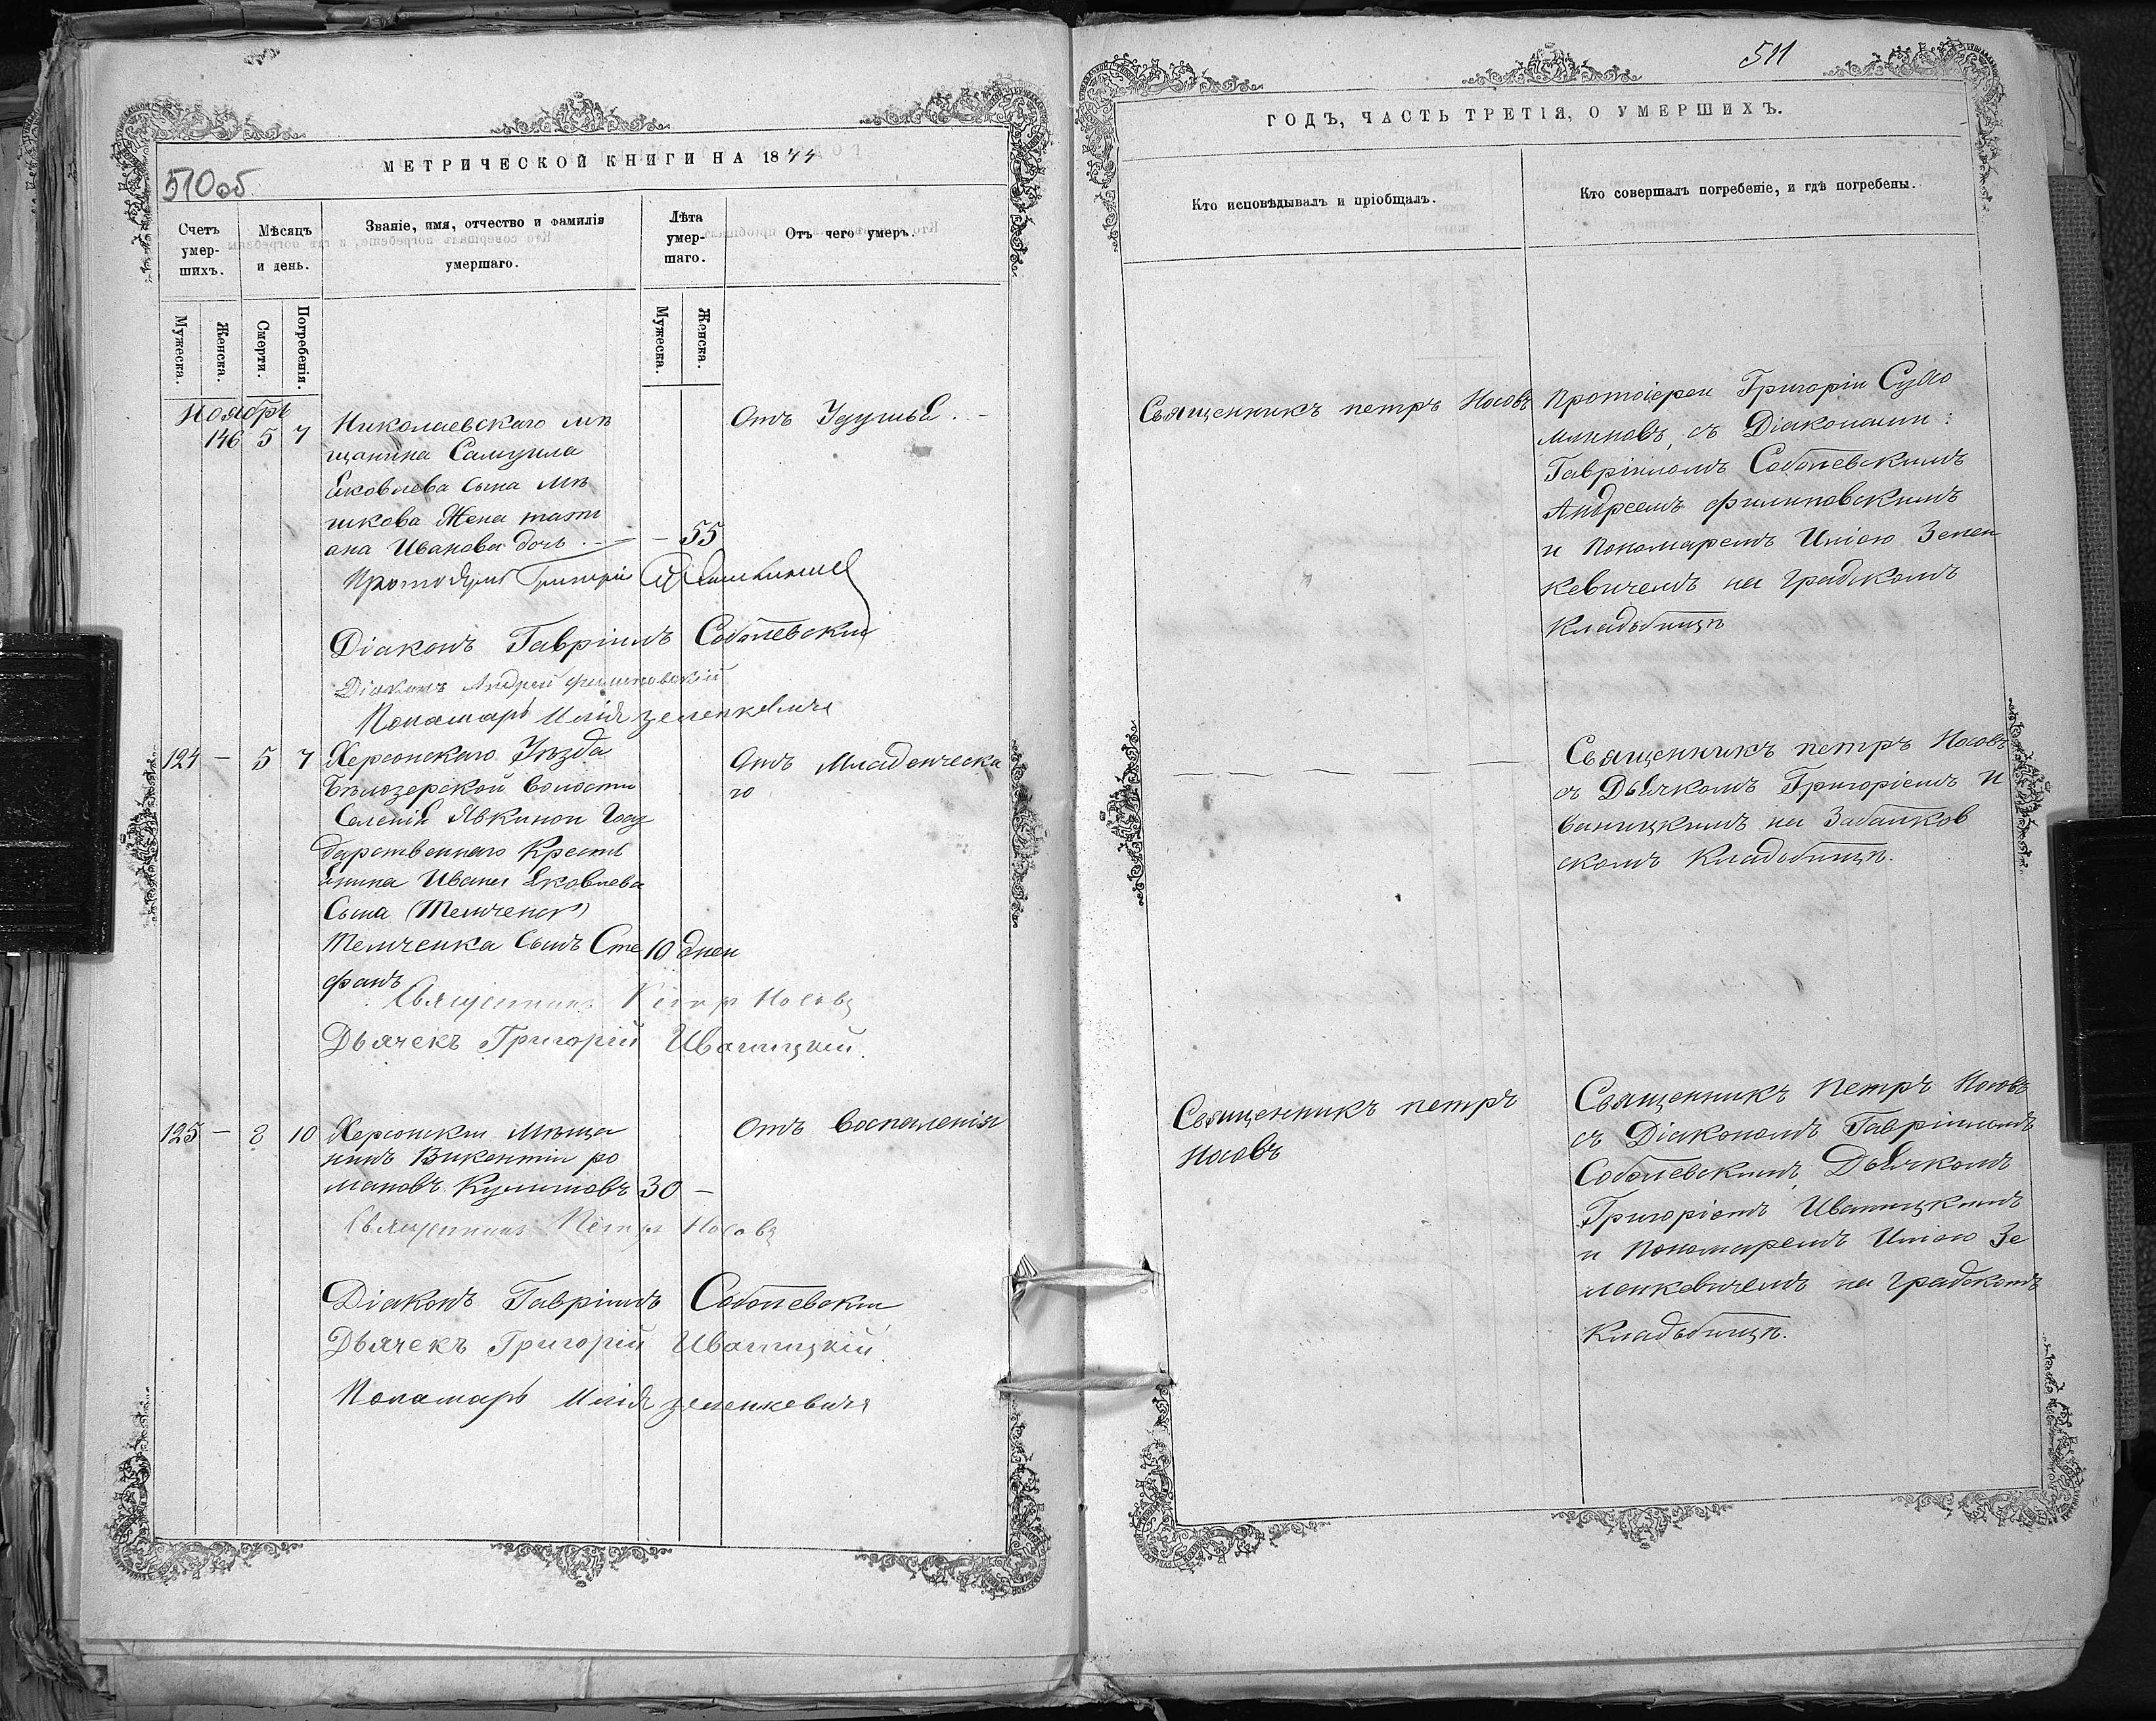 510об
МЕТРИЧЕСКОЙ КНИГИ НА 1844
Счетъ умер-шихъ.
Мѣсяцъ и день.
Званіе, имя, отчество и фамилія умершаго.
Лѣта умер-шаго.
Отъ чего умеръ.
Мужеска.
Женска.
Смерти.
Погребенія.
Мужеска.
Женска.
Ноябрь
146 5 7 Николаевскаго мѣ
щанина Самуила
Яковлева сына Мѣ
шкова Жена тати
ана Иванова дочь. — 55
Отъ Удушья.
Діаконъ Гавріилъ Соболевскій
Діаконъ Андрей филиповскій
Понамарь Илія зеленкевичъ
124 — 5 7 Херсонскаго Уѣзда
Бѣлозерской волости
Селенія Явкиной Госу
дарственнаго Кресть
янина Ивана Яковлева
Сына (Темченка)
Темченка Сынъ Сте 10 дней
фанъ
Отъ Младенческа
го
Священникъ Петръ Носовъ
Дьячекъ Григорій Иваницкій.
125 — 8 10 Херсонскій Мѣща
нинъ Викентій ро
мановъ 30 —
Отъ воспаленія
Священникъ Петръ Носовъ
Діаконъ Гавріилъ Соболевскій
Дьячекъ Григорій Иваницкій.
Понамарь Илія зеленкевичъ
511
ГОДЪ, ЧАСТЬ ТРЕТІЯ, О УМЕРШИХЪ.
Кто исповѣдывалъ и пріобщалъ.
Кто совершалъ погребеніе, и гдѣ погребены.
Священникъ петръ Носовъ
Протоіерей Григорій
съ Діаконами:
Гавріиломъ Соболевскимъ
Андреемъ филиповскимъ
и Пономаремъ Иліею Зелен
кевичемъ на Градскомъ
Кладбищѣ
Священникъ петръ Носовъ
съ Дьячкомъ Григоріемъ И
ваницкимъ на Забалков
скомъ Кладбищѣ.
Священникъ петръ
Носовъ
Священникъ Петръ Носовъ
съ Діакономъ Гавріиломъ
Соболевскимъ, Дьячкомъ
Григоріемъ Иваницкимъ
и Пономаремъ Иліею Зе
ленкевичемъ на Градскомъ
Кладбищѣ.